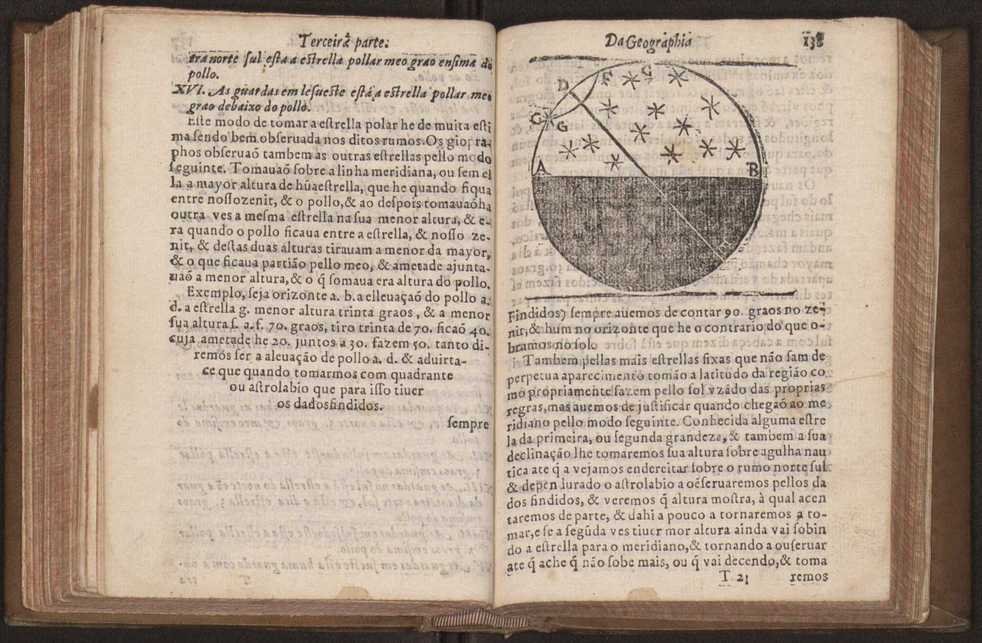 Terceira parte.
tra norte sul esta a estrella pollar meo grao ensima do
pollo.
XVI. As guardas em lesueste está a estrella pollar meo
grao debaixo do pollo.
Este modo de tomar a estrella polar he de muita esti
ma sendo bem obseruada nos ditos rumos. Os giogra-
phos obseruaõ tambem as outras estrellas pello modo
seguinte. Tomauaõ sobre a linha meridiana, ou sem el
la a mayor altura de hũa estrella, que he quando fiqua
entre nosso zenit, & o pollo, & ao despois tomauaõ ha
outra ves a mesma estrella na sua menor altura, & e-
ra quando o pollo ficaua entre a estrella, & nosso ze-
nit, & destas duas alturas tirauam a menor da mayor,
& o que ficaua partiáo pello meo, & ametade ajunta-
uaõ a menor altura, & o q̃ somaua era altura do pollo.
Exemplo, seja orizonte a. b. a elleuaçaõ do pollo a.
d. a estrella g. menor altura trinta graos, & a menor
sua altura s. a. f. 70. graos, tiro trinta de 70. ficaõ 40.
cuja ametade he 20. juntos a 30. fazem 50. tanto di-
remos ser a aleuação de pollo a. d. & aduirta-
ce que quando tomarmos com quadrante
ou astrolabio que para isso tiuer
os dados findidos.
sempre
Da Geographia 138
D F G
C G
A B
Findidos) sempre auemos de contar 90. graos no ze-
nit, & hum no orizonte que he o contrario do que o-
bramos no sol.
Tambem pellas mais estrellas fixas que não sam de
perpetua aparecimento tomão a latitudo da região co
mo propriamente fazem pello sol vzãdo das proprias
regras, mas auemos de justificar quando chegaõ ao me
ridiano pello modo seguinte. Conhecida alguma estre
la da primeira, ou segunda grandeza, & tambem a sua
declinação lhe tomaremos sua altura sobre agulha nau
tica ate q̃ a vejamos endereitar sobre o rumo norte sul
& dependurado o astrolabio a obseruaremos pellos da
dos findidos, & veremos q̃ altura mostra, à qual acen
taremos de parte, & dahi a pouco a tornaremos a to-
mar, e se a segũda ves tiuer mor altura ainda vai sobin
do a estrella para o meridiano, & tornando a ouseruar
ate q̃ ache q̃ não sobe mais, ou q̃ vai decendo, & toma
T 2 remos